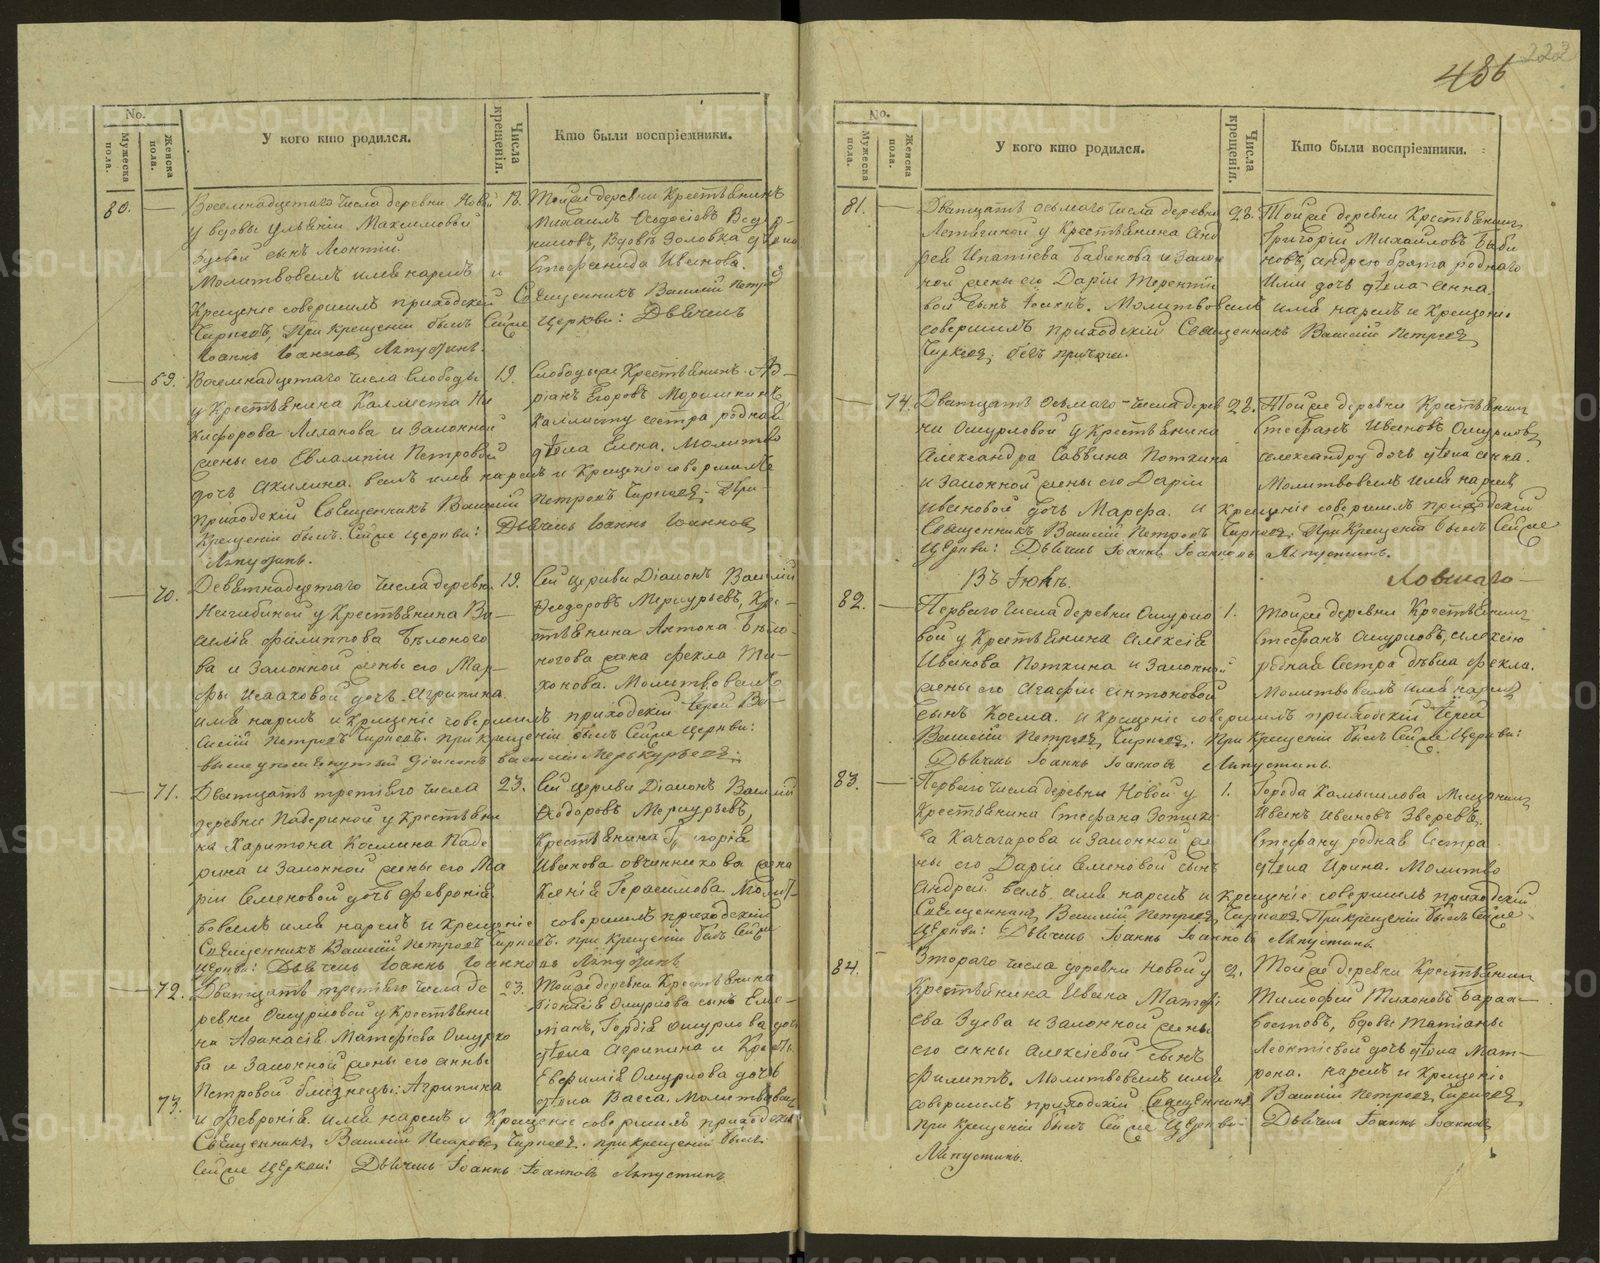 486
222
No.
Мужеска пола.
Женска пола.
У кого кто родился.
Числа крещенія.
Кто были воспріемники.
80. Восемнадцетаго числа деревни Новой
у вдовы Ульяніи Максимовой
Зуевой сынъ Леонтій.
Молитвовалъ имя нарекъ и
Крещеніе совершилъ приходскій Священникъ Василій Петровъ
Чирковъ, При Крещеніи былъ Сей же церкви: Дьячекъ
Іоаннъ Іоанновъ Лапустинъ.
18. Той же деревни Крестьянинъ
Михаилъ Ѳеодосіевъ
вдовы золовка дѣвка
Стефанида Иванова.
69. Восемнадцетаго числа Слободы
у Крестьянина Каллиста Ни
кифорова Лиханова и Законной
жены его Евлампіи Петровой
дочь Акилина. валъ имя нарекъ и Крещеніе совершилъ
приходскій Священникъ Василій Петровъ Чирковъ. При
Крещеніи былъ Сей же церкви: Дьячекъ Іоаннъ Іоанновъ
Лапустинъ.
19. Слободы же Крестьянинъ
Егоровъ
Каллисту сестра родная
дѣвка Елена. Молитво
70. Девятнадцетаго числа деревни
у Крестьянина Ва
силія Филиппова Бѣлоного
ва и Законной жены его Мар
фы Исааковой дочь Агрипина.
имя нарекъ и Крещеніе совершилъ приходскій Іерей Ва
силій Петровъ Чирковъ. при крещеніи былъ Сей же церкви:
вышеупомянутый Діаконъ Василій Меркурьевъ.
19. Сей церкви Діаконъ Василій
Ѳеодоровъ Меркурьевъ, Кре
стьянина Антона Бѣло
ногова жена Ѳекла Ти
хонова. Молитвовалъ
71. Двадцать третьяго числа
деревни Падериной у Крестьяни
на Харитона Космина Паде
рина и Законной жены его Ма
ріи Семеновой дочь Февронія.
вовалъ имя нарекъ и Крещеніе совершилъ приходскій
Священникъ Василій Петровъ Чирковъ. при Крещеніи былъ Сей же
церкви: Дьячекъ Іоаннъ Іоанновъ Лапустинъ
23. Сей церкви Діаконъ Василій
Ѳеодоровъ Меркурьевъ,
Крестьянина Григорія
Иванова Овчинникова жена
Ксенія Герасимова. Молит
72. Двадцать третьяго числа де
ревни Ошурковой у Крестьяни
на Аѳанасія Матфѣева Ошурко
ва и Законной жены его Анны
Петровой близнецы: Агрипина
73. и Февронія. имя нарекъ и Крещеніе совершилъ приходскій
Священникъ Василій Петровъ Чирковъ. при крещеніи былъ
Сей же церкви: Дьячекъ Іоаннъ Іоанновъ Лапустинъ.
23. Той же деревни Крестьянина
Ошуркова сынъ Еме
ліанъ, Гордія Ошуркова дочь
дѣвка Агрипина и Крест:
Евфимія Ошуркова дочь
дѣвка Васса. Молитвовалъ
No.
Мужеска пола.
Женска пола.
У кого кто родился.
Числа крещенія.
Кто были воспріемники.
81. Двадцать осьмаго числа деревни
у Крестьянина Анд
рея Ипатіева Бабинова и Закон
ной жены его Даріи Теренті
вой сынъ Іоаннъ. Молитвовалъ имя нарекъ и Крещеніе
совершилъ приходскій Священникъ Василій Петровъ
Чирковъ, безъ причта.
28. Той же деревни Крестьянинъ
Григорій Михайловъ Баби
новъ, Андрею брата роднаго
дочь дѣвка Анна.
74. Двадцать осьмаго числа дерев
ни Ошурковой у Крестьянина
Александра Саввина Поткина
и Законной жены его Даріи
Ивановой дочь Марфа. и Крещеніе совершилъ приходскій
Священникъ Василій Петровъ Чирковъ. При Крещеніи былъ Сей же
Церкви: Дьячекъ Іоаннъ Іоанновъ Лапустинъ.
28. Той же деревни Крестьянинъ
Стефанъ Ивановъ Ошурковъ,
Александру дочь дѣвка Анна.
Молитвовалъ имя нарекъ
Въ Іюлѣ.
82. Перваго числа деревни Ошурко
вой у Крестьянина Алексія
Иванова Поткина и Законной
жены его Агафіи Антоновой
сынъ Косма. и Крещеніе совершилъ приходскій Іерей
Василій Петровъ Чирковъ. При Крещеніи былъ Сей же Церкви:
Дьячекъ Іоаннъ Іоанновъ Лапустинъ.
1. Той же деревни Крестьянинъ
Стефанъ Ошурковъ, Алексію
родная Сестра дѣвка Ѳекла.
Молитвовалъ имя нарекъ
83. Перваго числа деревни Новой у
Крестьянина Стефана
ва Качагарова и Законной же
ны его Даріи Семеновой сынъ
Андрей. валъ имя нарекъ и Крещеніе совершилъ приходскій
Священникъ Василій Петровъ Чирковъ. При крещеніи былъ Сей же
церкви: Дьячекъ Іоаннъ Іоанновъ Лапустинъ.
1. Города Камышлова Мѣщанинъ
Иванъ Ивановъ Зверевъ,
Стефану родная Сестра
дѣвка Ирина. Молитво
84. Втораго числа деревни Новой у
Крестьянина Ивана Матфі
ева Зуева и Законной жены
его Анны Алексіевой сынъ
Филиппъ. Молитвовалъ имя
совершилъ приходскій Священникъ Василій Петровъ Чирковъ
при крещеніи былъ Сей же Церкви: Дьячекъ Іоаннъ Іоанновъ
Лапустинъ.
2. Той же деревни Крестьянинъ
Тимофей Тихоновъ
вдовы Татіаны
Леонтіевой дочь дѣвка Мат
рона. нарекъ и Крещеніе
METRIKI.GASO-URAL.RU